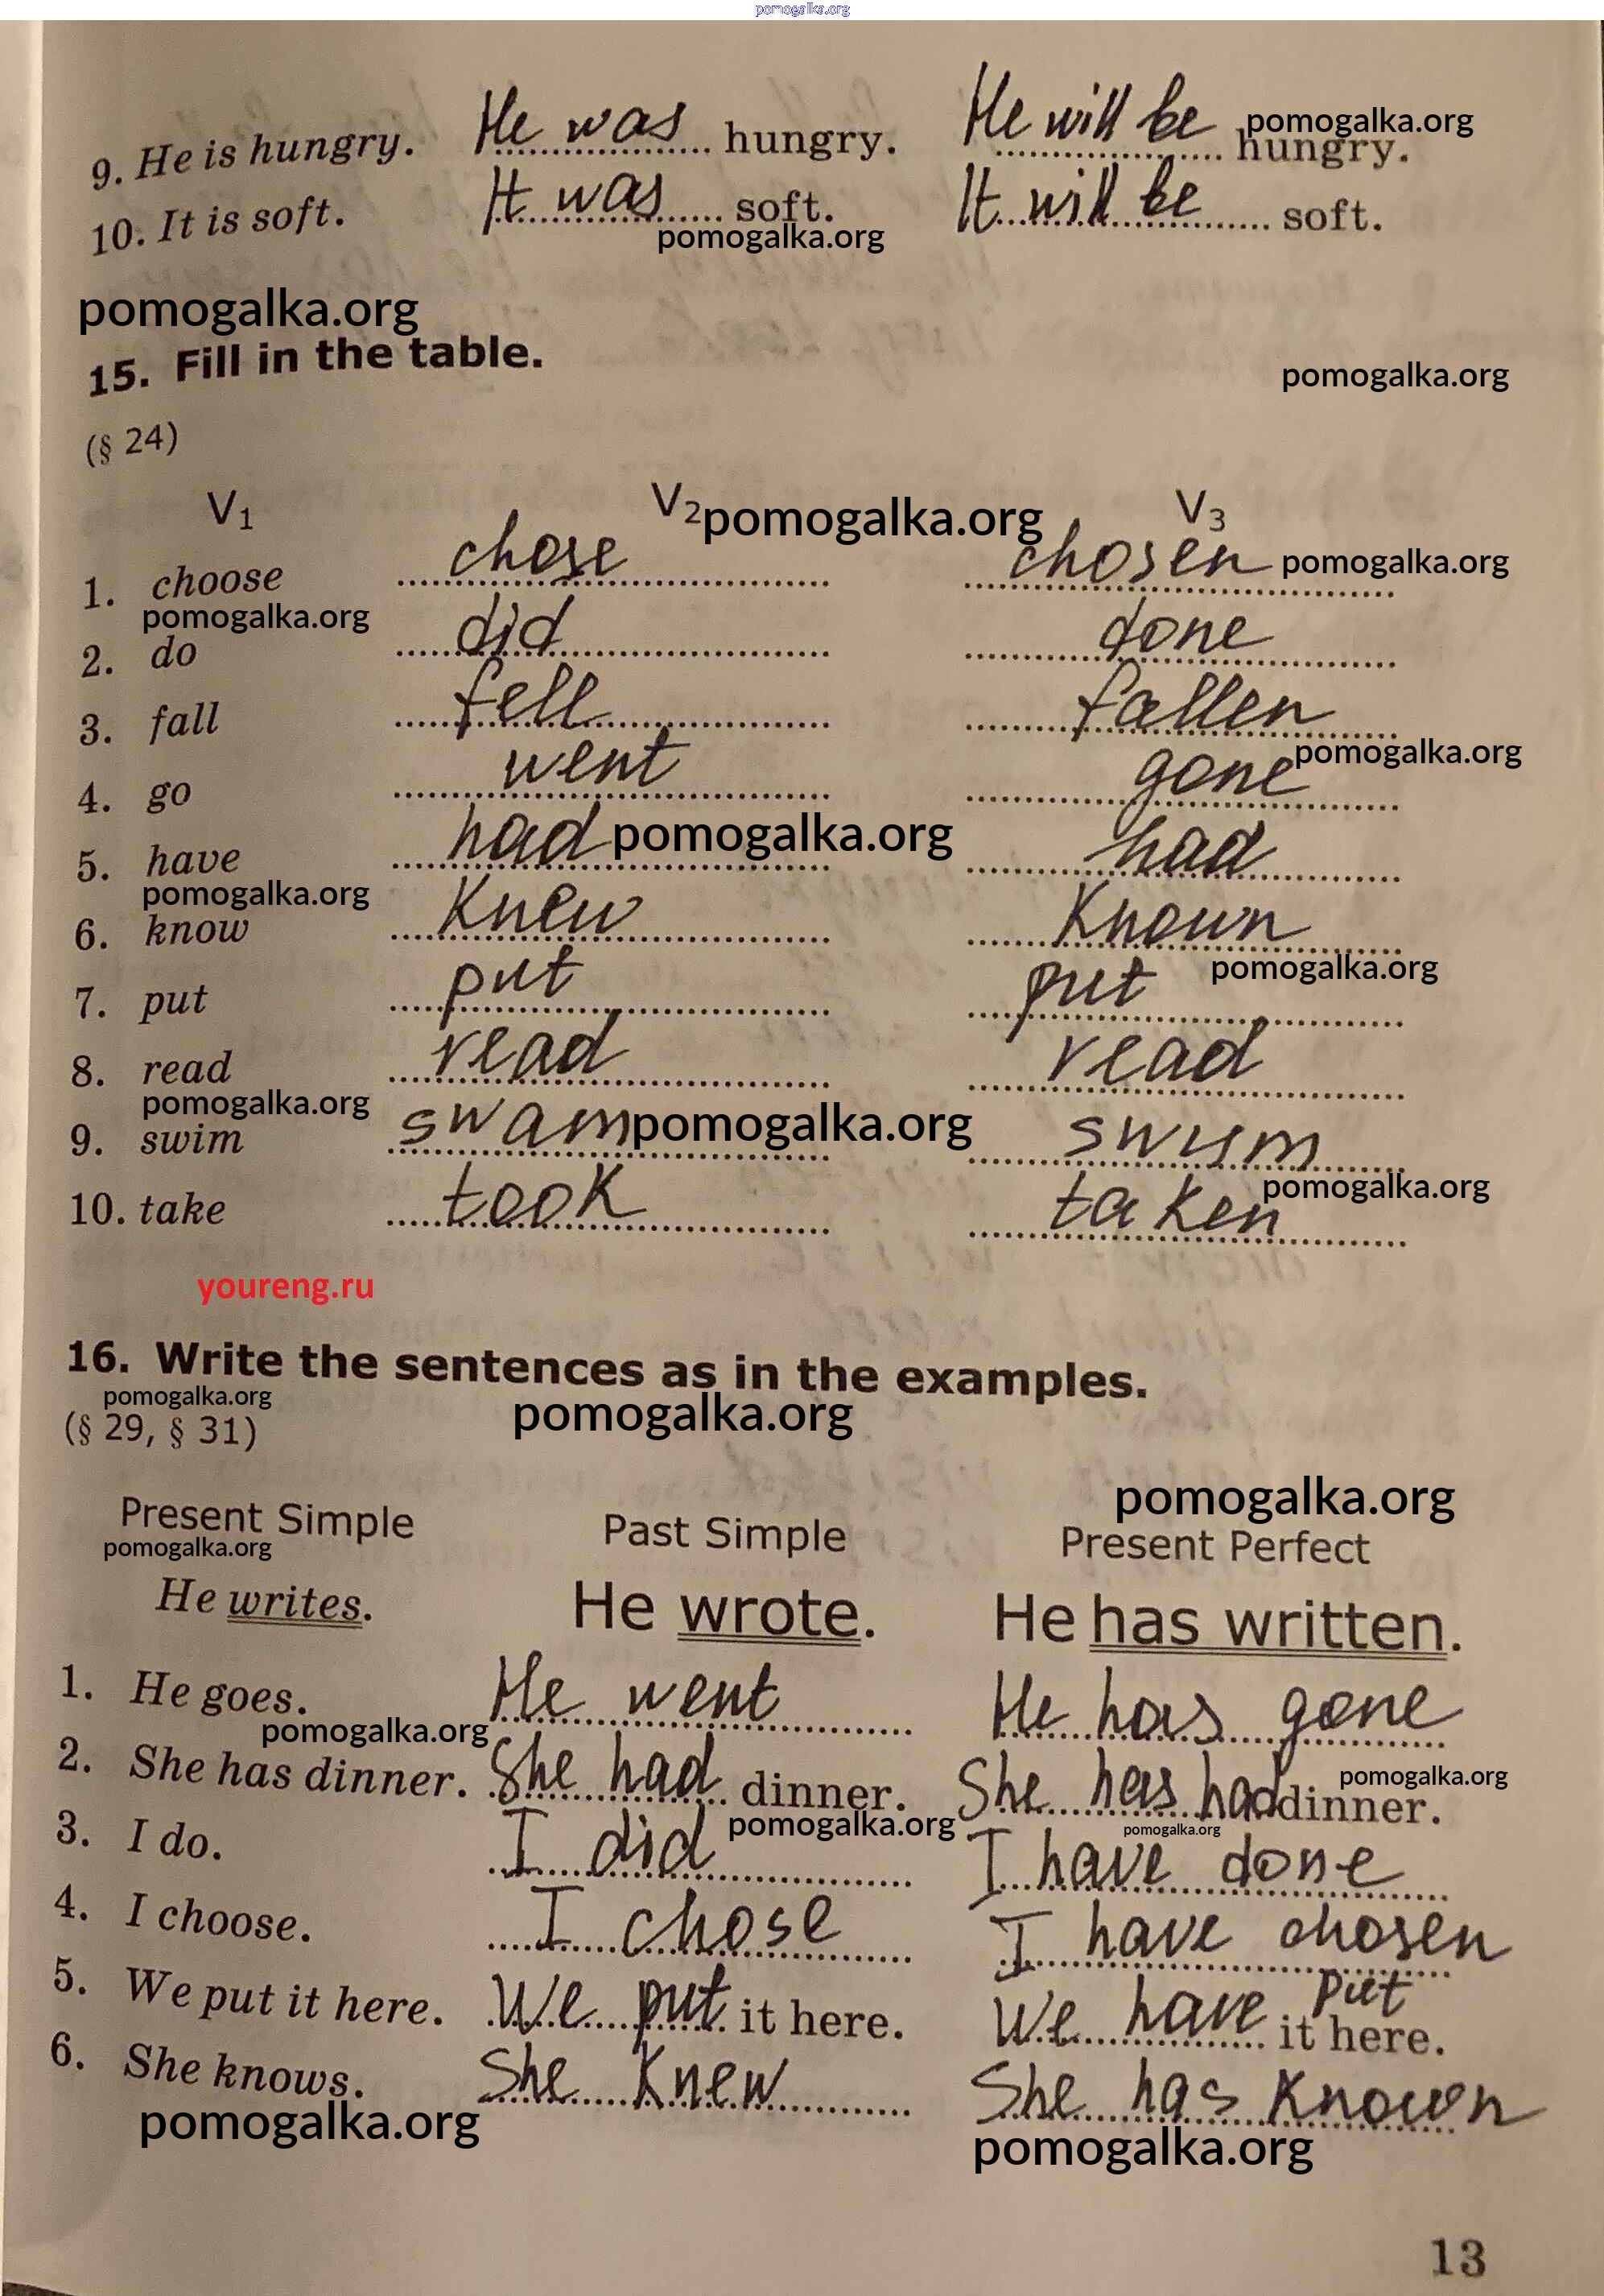 pomogalka.org
9. He is hungry. He was hungry. He will be hungry. pomogalka.org
10. It is soft. It was soft. It will be soft.
pomogalka.org
pomogalka.org
15. Fill in the table.
pomogalka.org
(§ 24)
V1 V2 pomogalka.org V3
1. choose chose chosen pomogalka.org
pomogalka.org
2. do did done
3. fall fell fallen
4. go went gone pomogalka.org
5. have had pomogalka.org had
pomogalka.org
6. know knew known
pomogalka.org
7. put put put
8. read read read
pomogalka.org
9. swim swam pomogalka.org swum
pomogalka.org
10. take took taken
youreng.ru
16. Write the sentences as in the examples.
pomogalka.org
(§ 29, § 31) pomogalka.org
pomogalka.org
Present Simple Past Simple Present Perfect
pomogalka.org
He writes. He wrote. He has written.
1. He goes. He went He has gone
pomogalka.org
2. She has dinner. She had dinner. She has had dinner. pomogalka.org
pomogalka.org pomogalka.org
3. I do. I did I have done
4. I choose. I chose I have chosen
5. We put it here. We put it here. We have put it here.
6. She knows. She knew She has known
pomogalka.org pomogalka.org
13